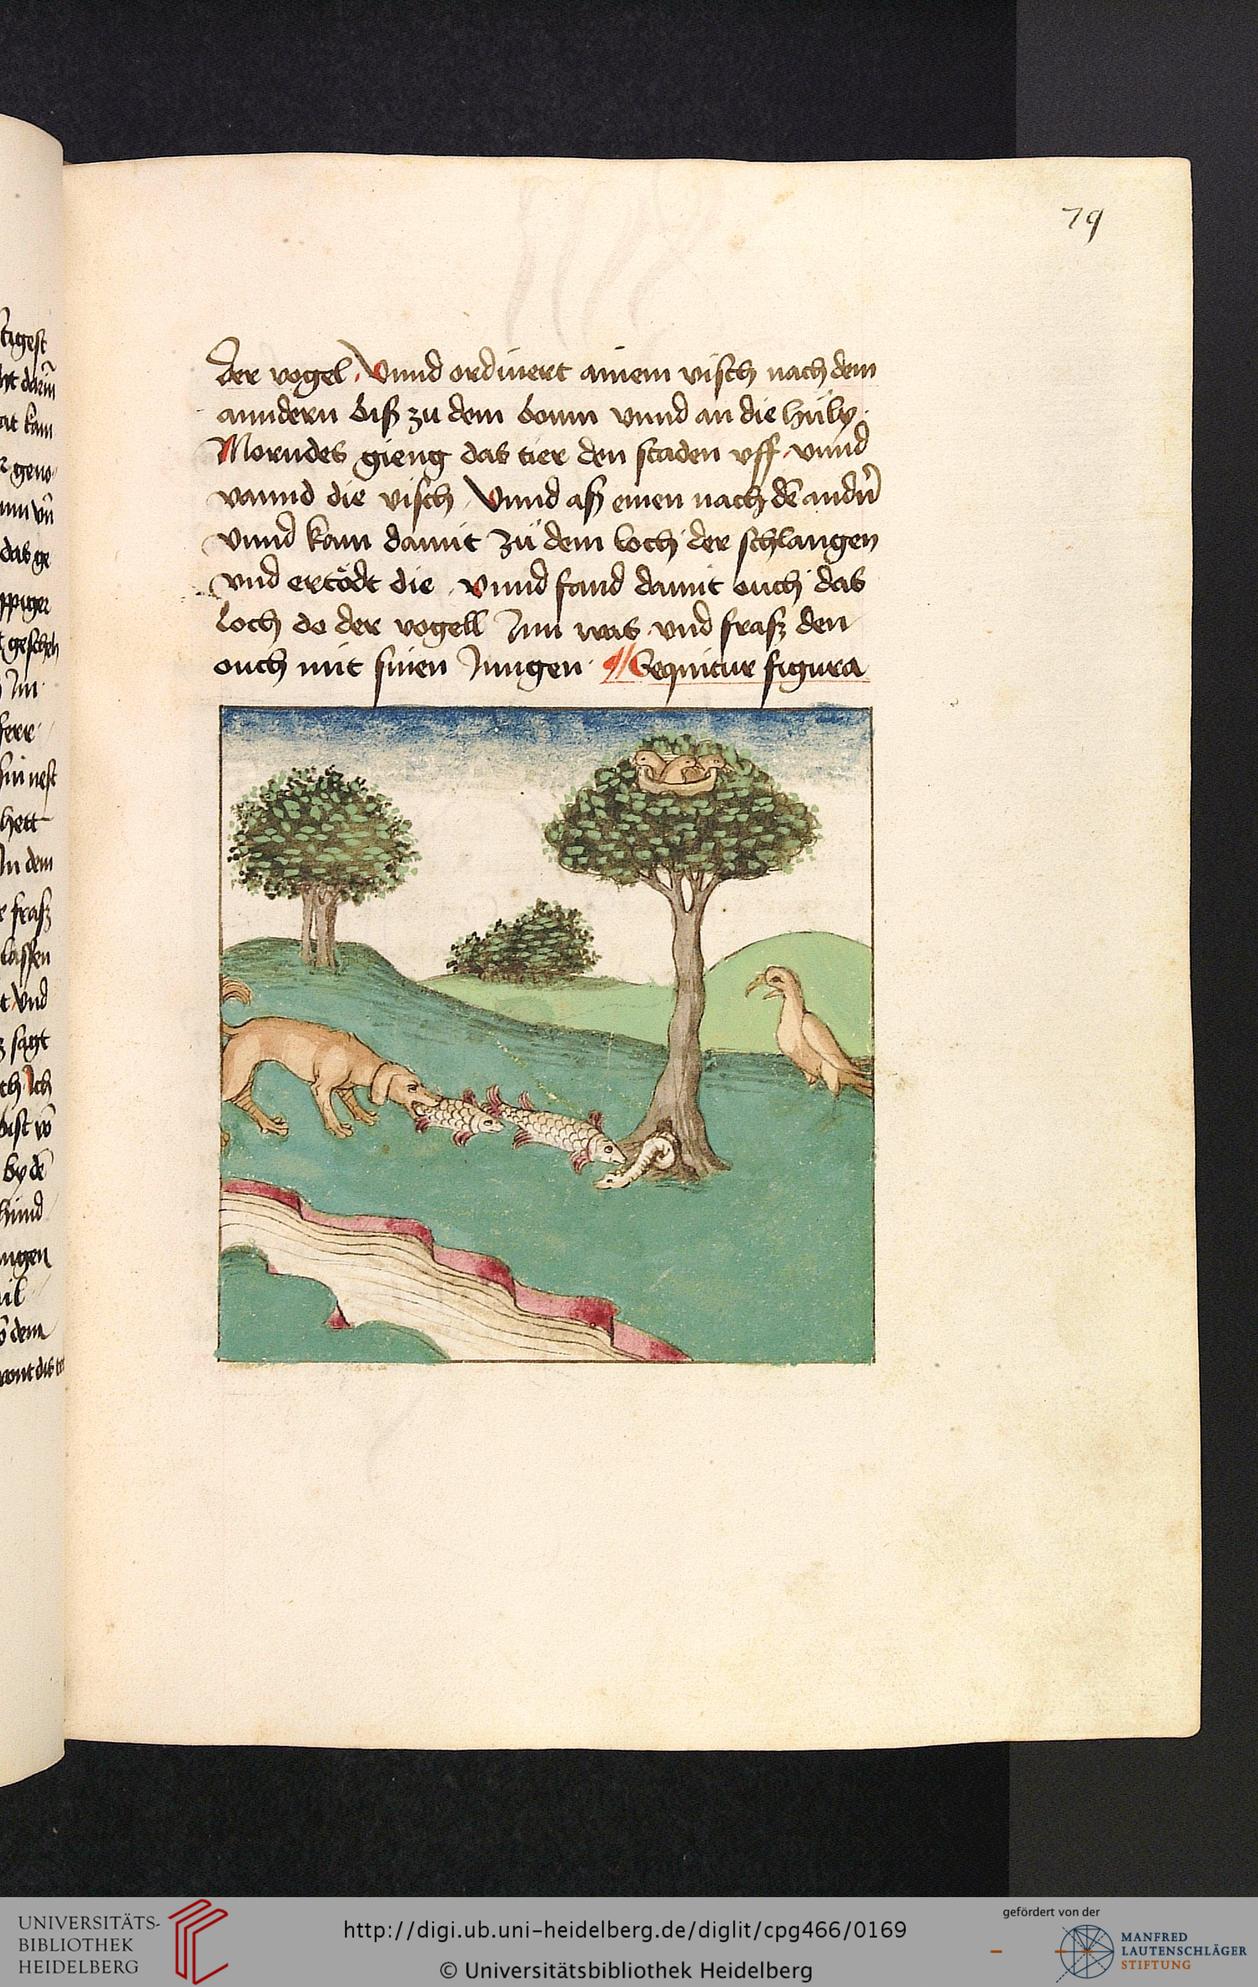 79
der vogel. Vnnd ordiniert ainem visch nach dem
anndern biß zu dem boum vnnd an die hüly.
Morndes gieng das tier den staden vff. vnnd
vannd die visch. Vnnd aß einen nach dē andn̄
vnnd kam damit zü dem loch der schlangen
vnd ertödt die. vnnd fand damit ouch das
loch do der vogell Inn was vnd frasß den
ouch mit sinen Jungen. Sequitur figura
tigest
geno
das ge
ppiger
gescheh
Jn
herr
sin nest
hett
Jn dem
frasß
lassen
vnd
sagt
Ich
bist
by dē
hund
ungen
dem
UNIVERSITÄTS-
BIBLIOTHEK
HEIDELBERG
http://digi.ub.uni-heidelberg.de/diglit/cpg466/0169
© Universitätsbibliothek Heidelberg
gefördert von der
MANFRED
LAUTENSCHLÄGER
STIFTUNG